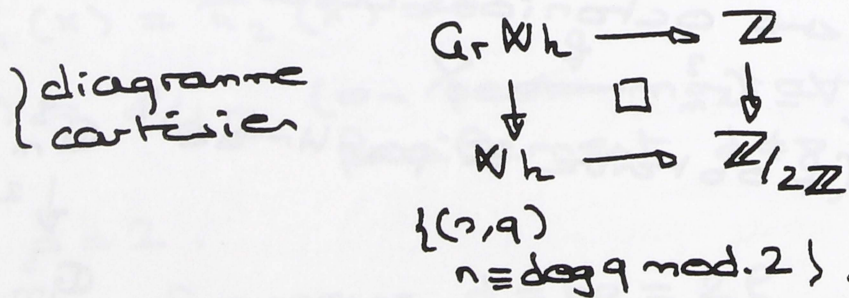 diagramme
cartésien
Gr Wh → ℤ
↓ □ ↓
Wh → ℤ/2ℤ
{(n,q)
n ≡ deg q mod. 2}.